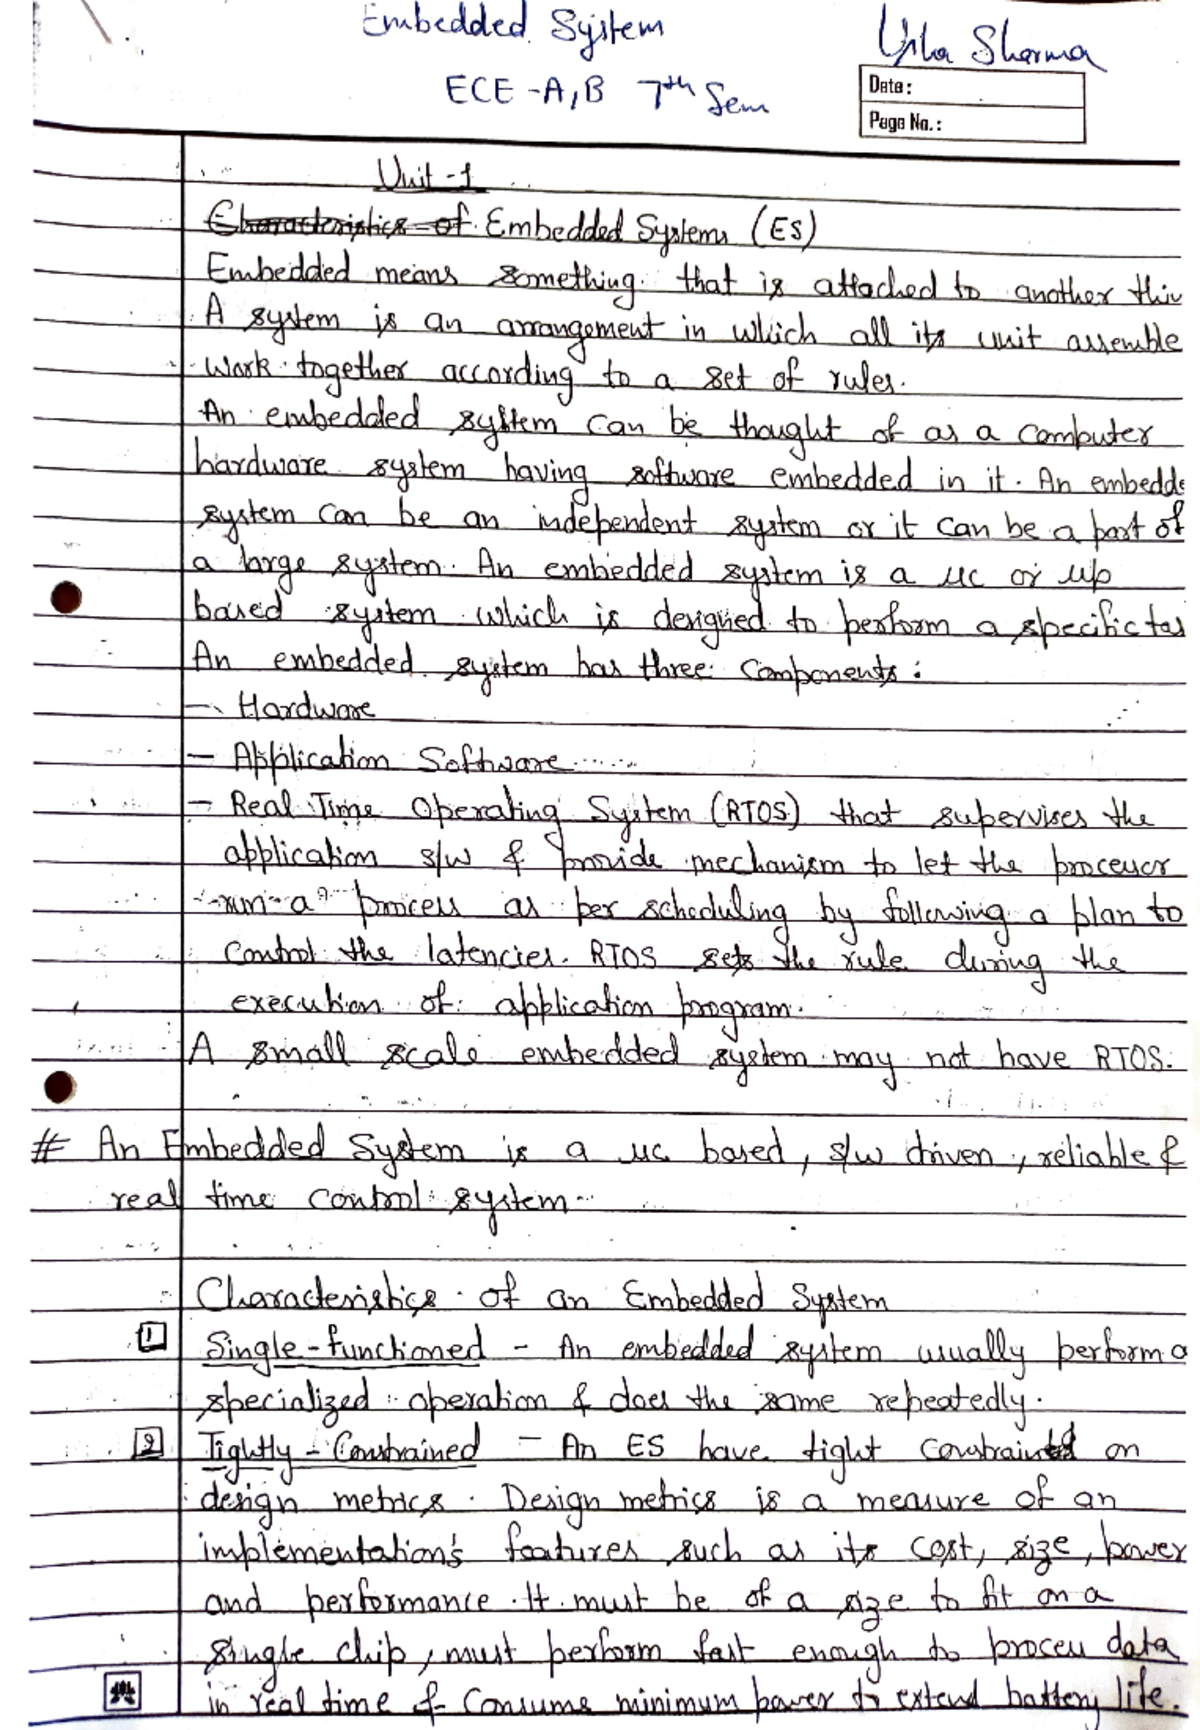 Embedded System
Usha Sharma
ECE -A,B 7th Sem
Date :
Page No. :
Unit -1
Characteristics of Embedded Systems (ES)
Embedded means something that is attached to another thin
A system is an arrangement in which all its unit assemble
work together according to a set of rules.
An embedded system can be thought of as a computer
hardware system having software embedded in it. An embedde
system can be an independent system or it can be a part of
a large system. An embedded system is a μc or μp
based system which is designed to perform a specific tas
An embedded system has three components :
- Hardware
- Application Software
- Real Time Operating System (RTOS) that supervises the
application s/w & provide mechanism to let the processor
run a process as per scheduling by following a plan to
control the latencies. RTOS sets the rule during the
execution of application program.
A small scale embedded system may not have RTOS.
# An Embedded System is a μc based, s/w driven, reliable &
real time control system
Characteristics of an Embedded System
1 Single-functioned - An embedded system usually perform a
specialized operation & does the same repeatedly.
2 Tightly-Constrained - An ES have tight constraints on
design metrics. Design metrics is a measure of an
implementation's features such as its cost, size, power
and performance. It must be of a size to fit on a
single chip, must perform fast enough to process data
in real time & consume minimum power to extend battery life.